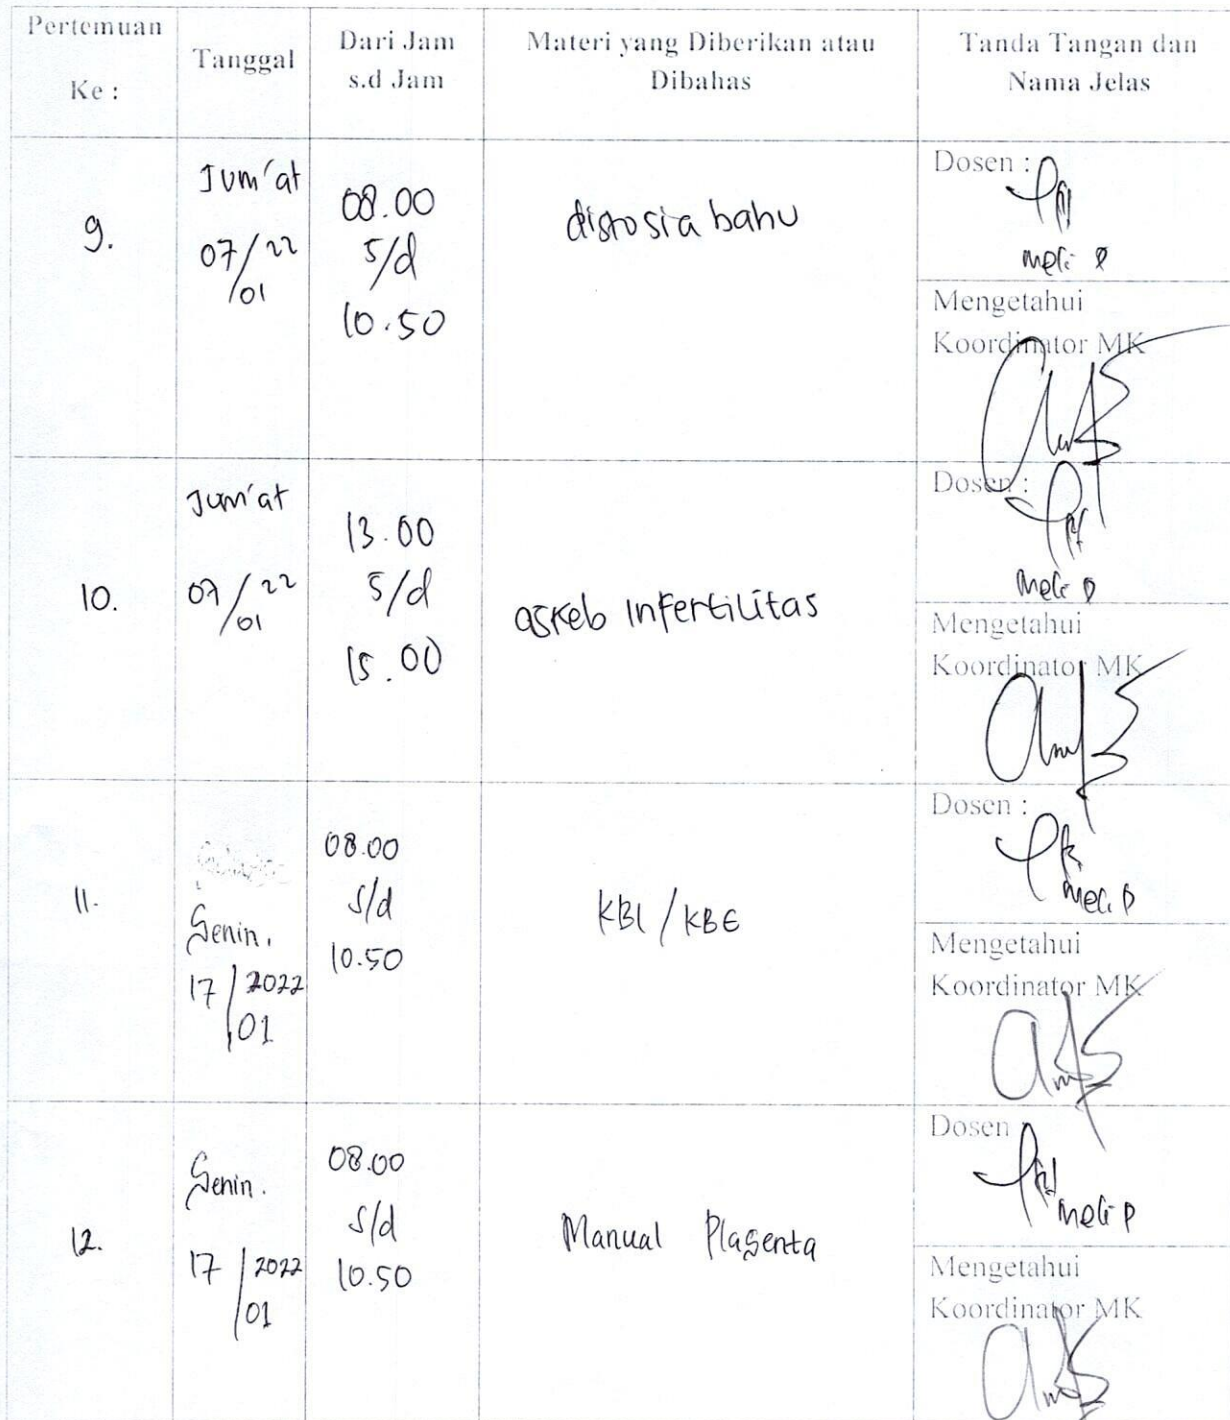 Pertemuan
Ke :
Tanggal
Dari Jam
s.d Jam
Materi yang Diberikan atau
Dibahas
Tanda Tangan dan
Nama Jelas
9.
Jum'at
07/22
/01
08.00
s/d
10.50
distosia bahu
Dosen :
Meli P
Mengetahui
Koordinator MK
10.
Jum'at
07/22
/01
13.00
s/d
15.00
askeb infertilitas
Dosen :
Meli P
Mengetahui
Koordinator MK
11.
Senin.
17/2022
01
08.00
s/d
10.50
KBI/KBE
Dosen :
Meli P
Mengetahui
Koordinator MK
12.
Senin.
17/2022
01
08.00
s/d
10.50
Manual Plasenta
Dosen
Meli P
Mengetahui
Koordinator MK